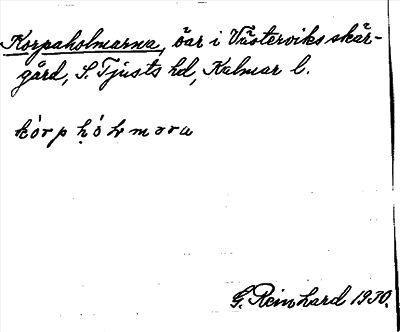 Korpaholmarna, öar i Västerviks skär-
gård, S. Tjusts hd, Kalmar l.
G. Reinhard 1930.